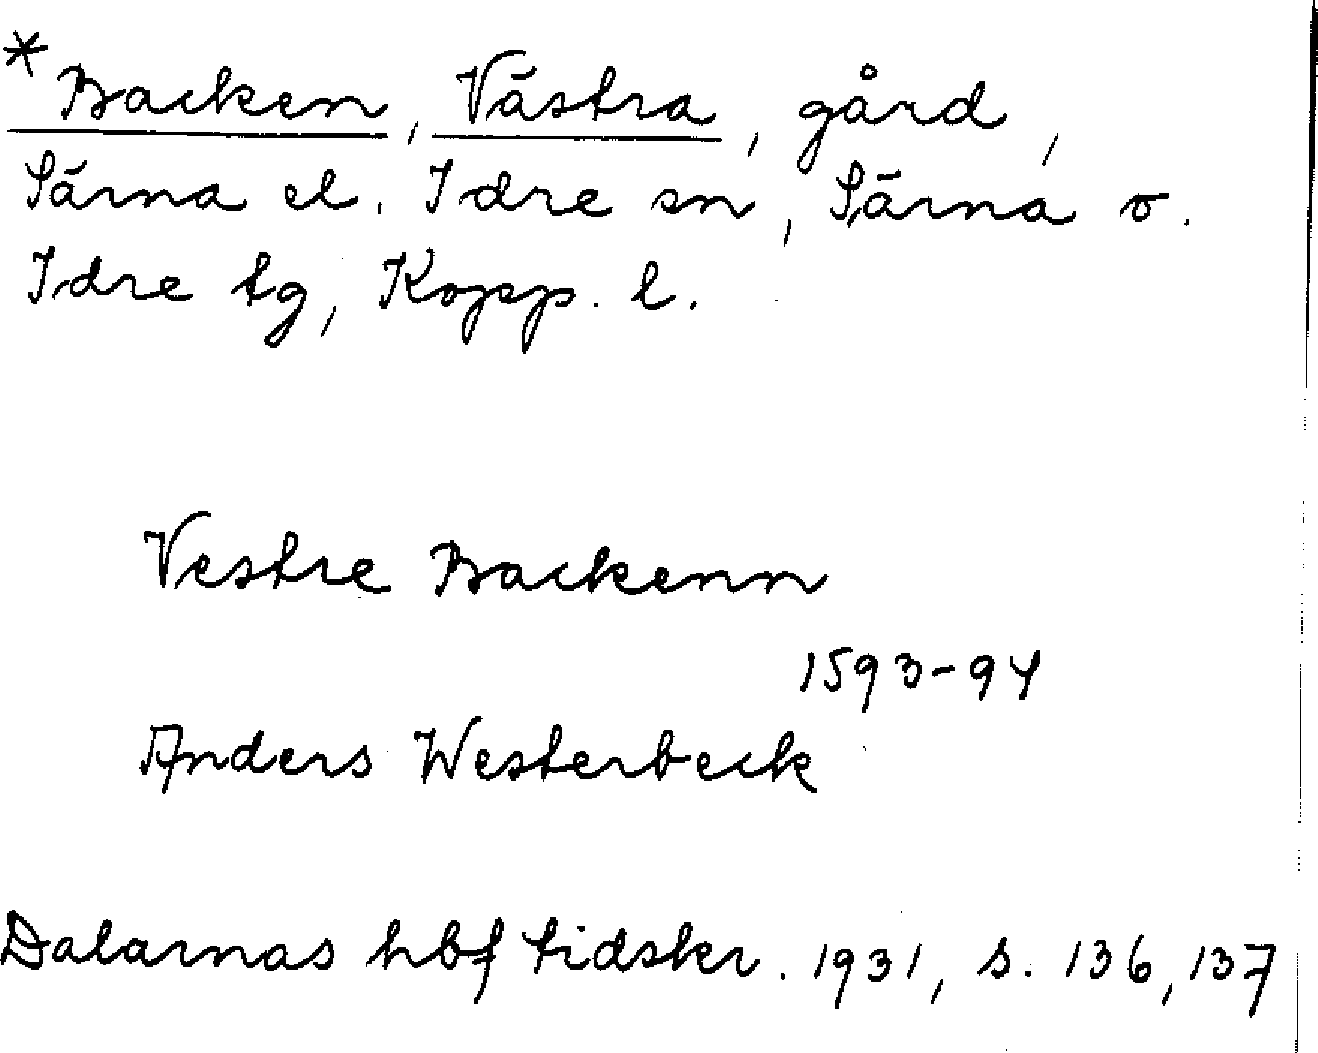 *Backen, Västra, gård,
Särna el. Idre sn, Särna o.
Idre tg, Kopp. l.
Vestre Backenn
1593-94
Anders Westerbeck
Dalarnas hbf tidskr. 1931, s. 136, 137